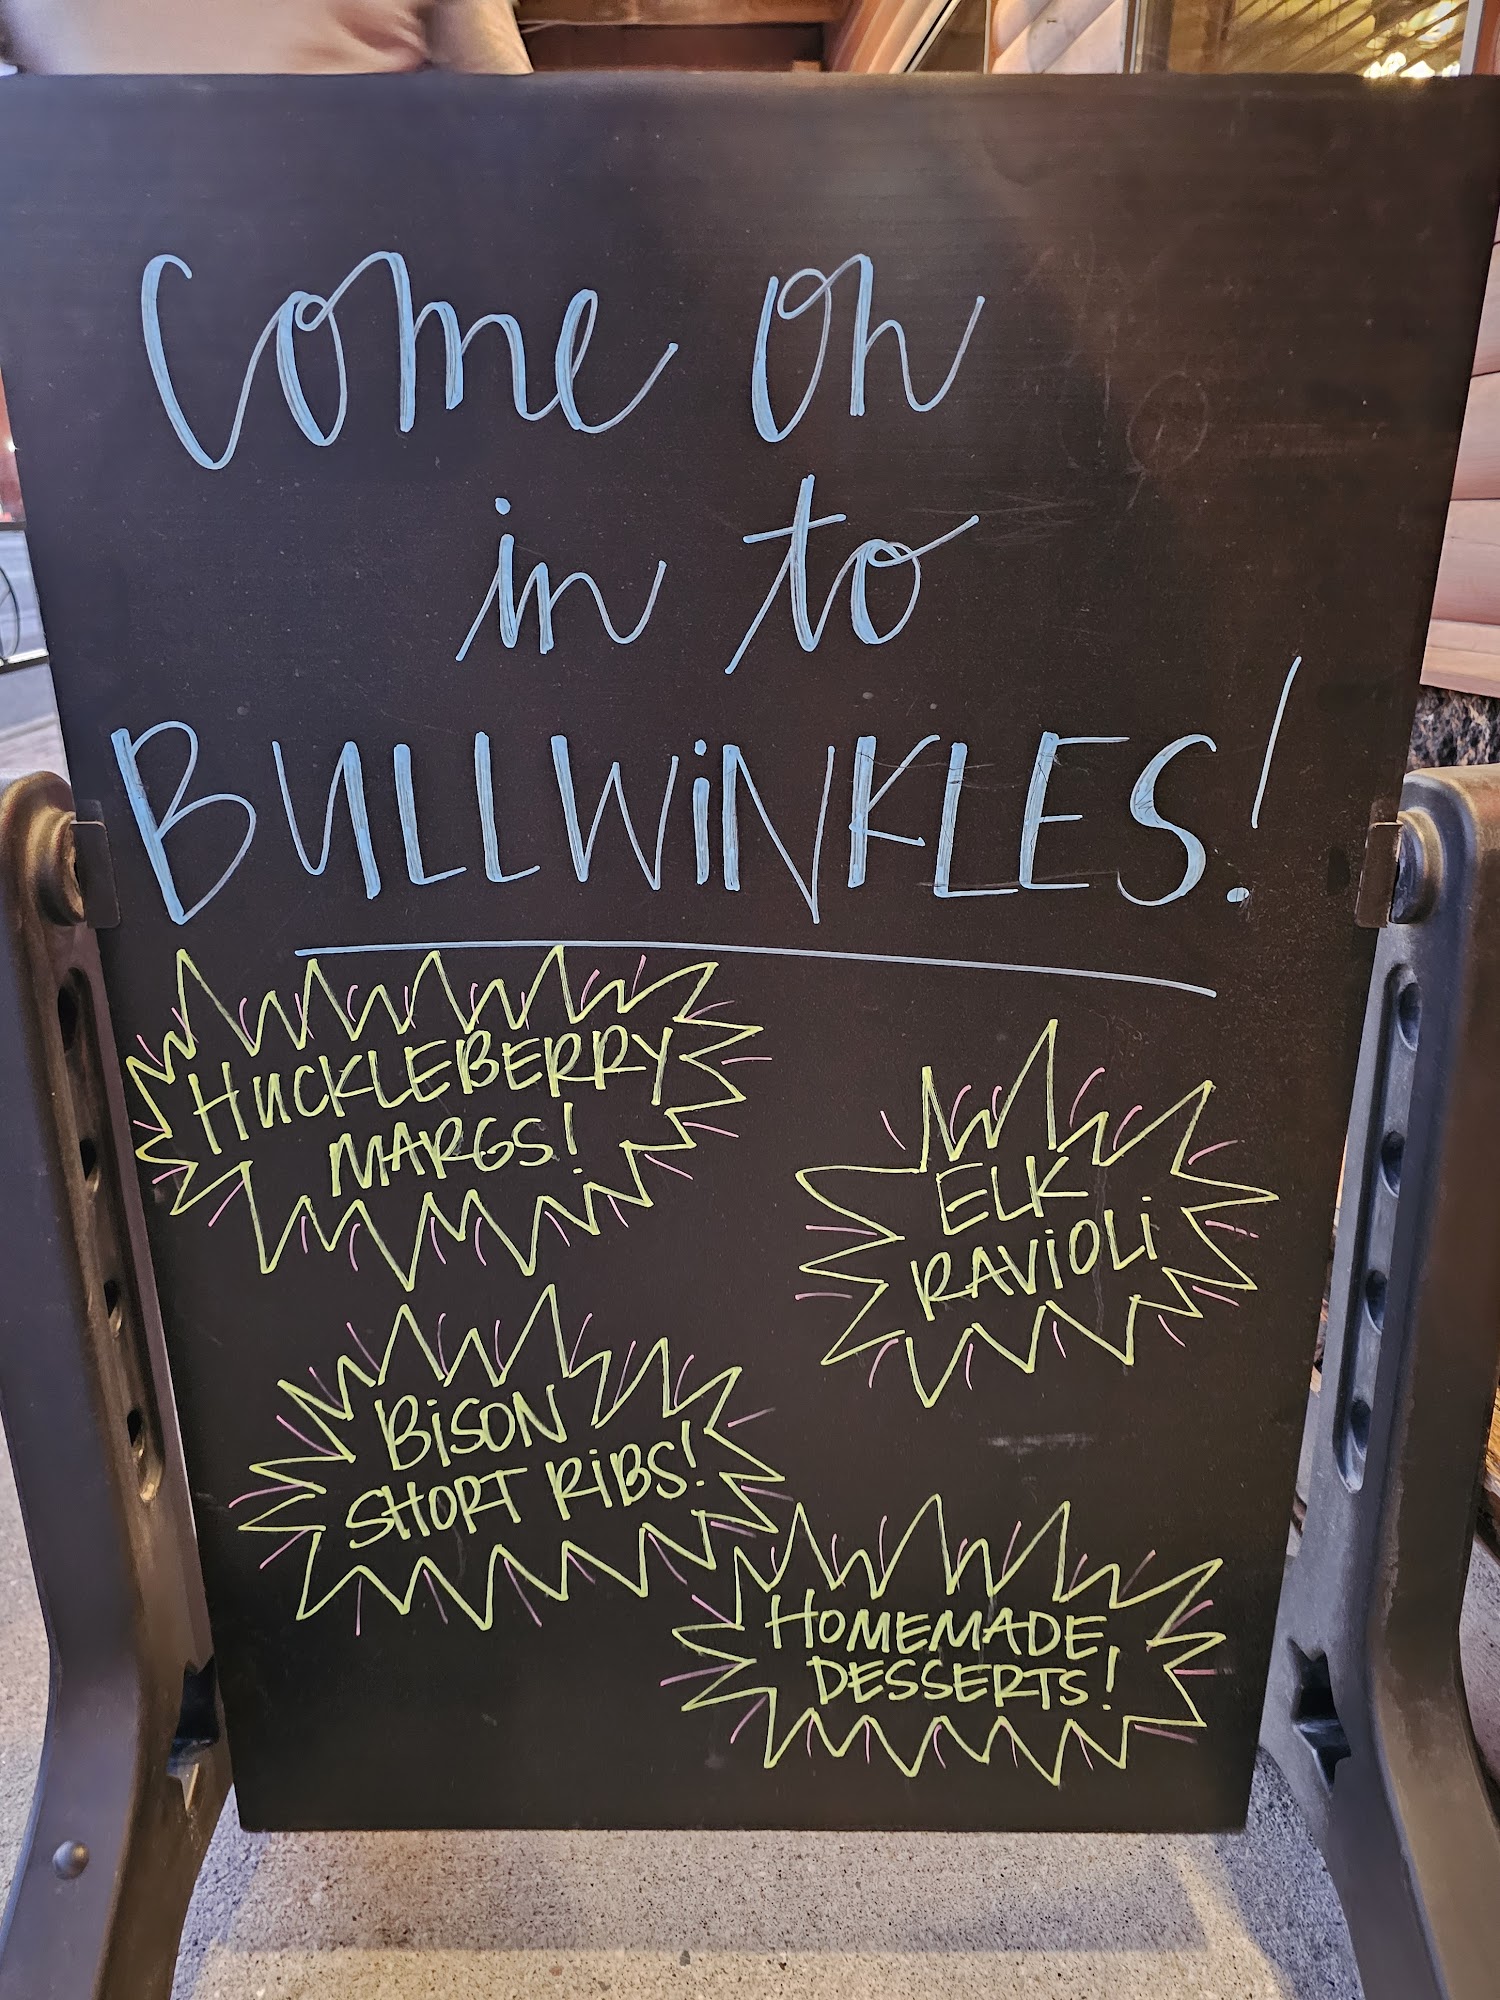 Come on
in to
BULLWiNKLES!
HUCKLEBERRY
MARGS!
ELK
RAViOLi
BiSON
SHORT RiBS!
HOMEMADE
DESSERTS!